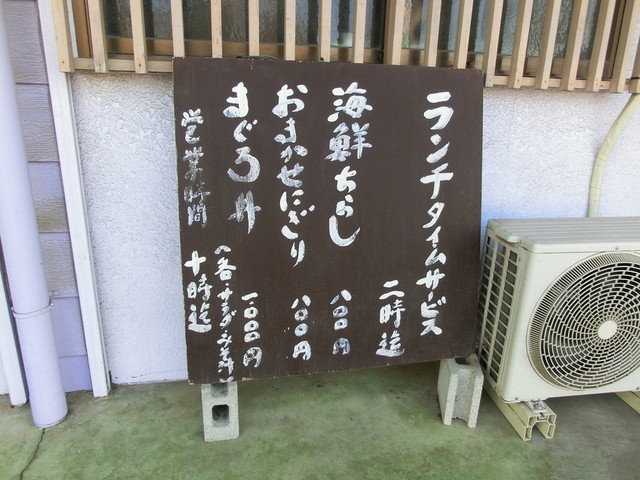 ランチタイムサービス
二時迄
海鮮ちらし 八〇〇円
おまかせにぎり 八〇〇円
まぐろ丼 一〇〇〇円
(各・サラダ・みそ汁
営業時間 十時迄